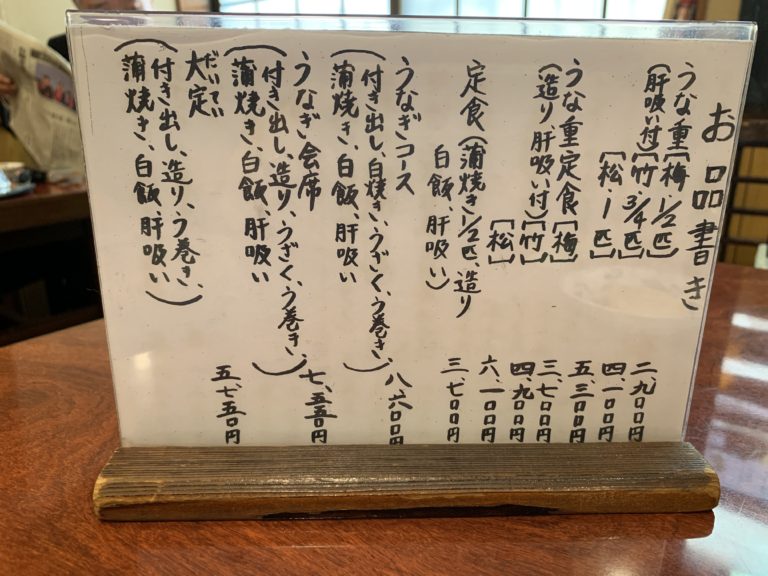 お品書き
うな重[梅 1/2匹] 二、九〇〇円
(肝吸い付)[竹・3/4匹] 四、一〇〇円
[松・1匹] 五、三〇〇円
うな重定食[梅] 三、七〇〇円
(造り 肝吸い付)[竹] 四、九〇〇円
[松] 六、一〇〇円
定食(蒲焼き1/2匹、造り
白飯、肝吸い) 三、七〇〇円
うなぎコース 八、六〇〇円
(付き出し、白焼き、うざく、う巻き、
蒲焼き、白飯、肝吸い)
うなぎ会席 七、五五〇円
(付き出し、造り、うざく、う巻き、
蒲焼き、白飯、肝吸い)
大定 だいてい 五、七五〇円
(付き出し、造り、う巻き、
蒲焼き、白飯、肝吸い)